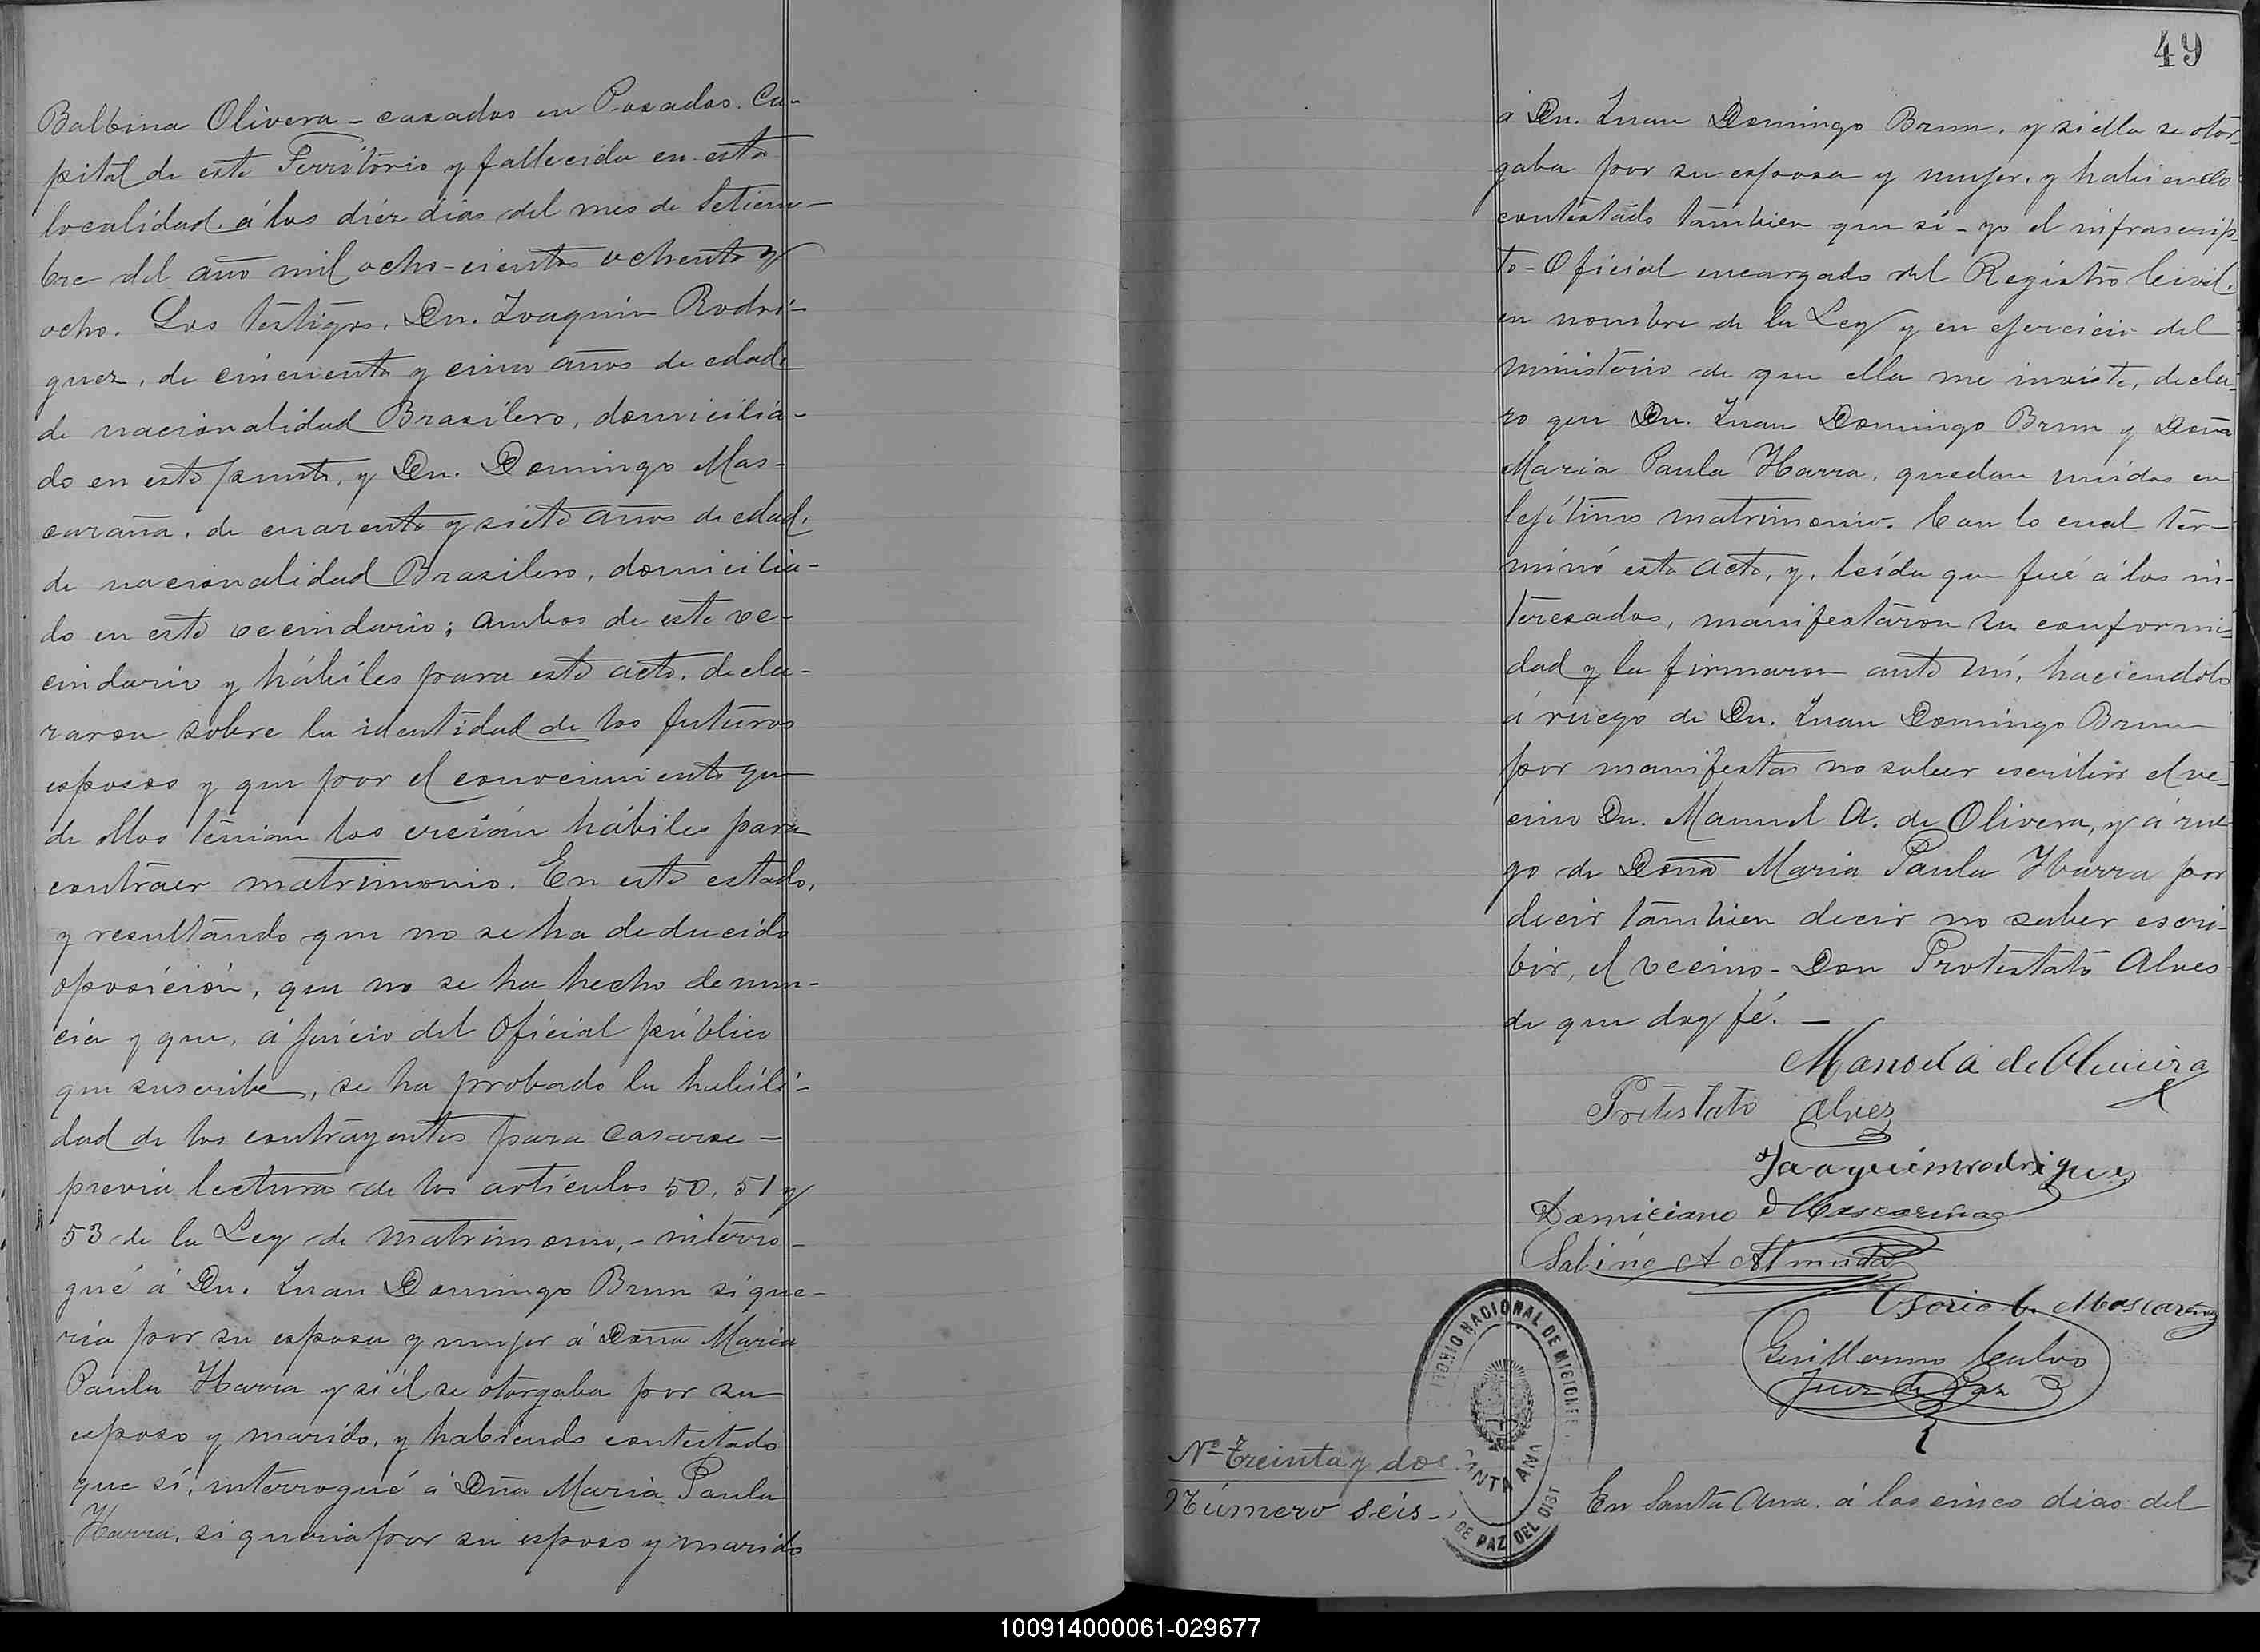 Balbina Olivera - casados en Posadas. Ca-
pital de este Territorio y fallecida en esta
localidad á los diéz dias del mes de Setiem-
bre del año mil ocho-cientos ochenta y
ocho. Los testigos, Dn. Joaquin Rodri-
guez, de cincuenta y cinco años de edad,
de nacionalidad Brasilero, domicilia-
do en este punto, y Dn. Domingo Mas-
caraña, de cuarenta y siete años de edad,
de nacionalidad Brasilero, domicilia-
do en este vecindario; ambos de este ve-
cindario y hábiles para este acto, decla-
raron sobre la identidad de los futuros
esposos y que por el conocimiento que
de ellos tenian los creían hábiles para
contraer matrimonio. En este estado,
y resultando que no se ha deducido
oposición, que no se ha hecho denun-
cia y que, á juicio del Oficial público
que suscribe, se ha probado la habili-
dad de los contrayentes para casarse -
previa lectura de los artículos 50, 51 y
53 de la Ley de matrimonio, - interro-
gué á Dn. Juan Domingo Brum si que-
ria por su esposa y mujer á Doña Maria
Paula Ibarra y si él se otorgaba por su
esposo y marido, y habiendo contestado
que sí, interrogué á Dña Maria Paula
Ibarra, si queria por su esposo y marido
49
á Dn. Juan Domingo Brum, y si ella se otor-
gaba por su esposa y mujer, y habiendo
contestado tambien que sí - yo el infrascrip-
to - Oficial encargado del Registro Civil,
en nombre de la Ley y en ejercicio del
ministerio de que ella me inviste, decla-
ro que Dn. Juan Domingo Brum y Doña
Maria Paula Ibarra, quedan unidos en
lejítimo matrimonio. Con lo cual ter-
minó este acto, y, leída que fué á los in-
teresados, manifestaron su conformi-
dad y la firmaron ante mí, haciendolo
á ruego de Dn. Juan Domingo Brum
por manifestar no saber escribir el ve-
cino Dn. Manuel A. de Olivera, y á rue-
go de Doña Maria Paula Ibarra por
decir tambien decir no saber escri-
bir, el vecino - Don Protestato Alves
de que doy fé. -
Manoel A de Oliveira
Protestato Alvez
Joaquim rodrigues
Domiciano d Mascarinas
Sabino A Almeida
Osorio C. Mascarenas
Guillermo Calvo
Juez de Paz
TERRITORIO NACIONAL DE MISIONES
SANTA ANA
DE PAZ DEL DIST
No Treinta y dos
Número seis -
En Santa Ana, á los cinco dias del
100914000061-029677